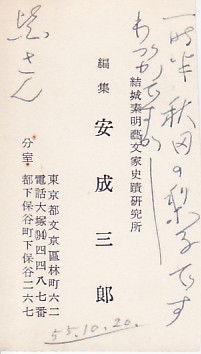 一時半 秋田の梨子です
わづかですが
結城素明藝文家史蹟研究所
編集 安成三郎
東京都文京區林町六二
電話大塚(94)四四八七番
分室 都下保谷町下保谷二六七
さん
55.10.20.